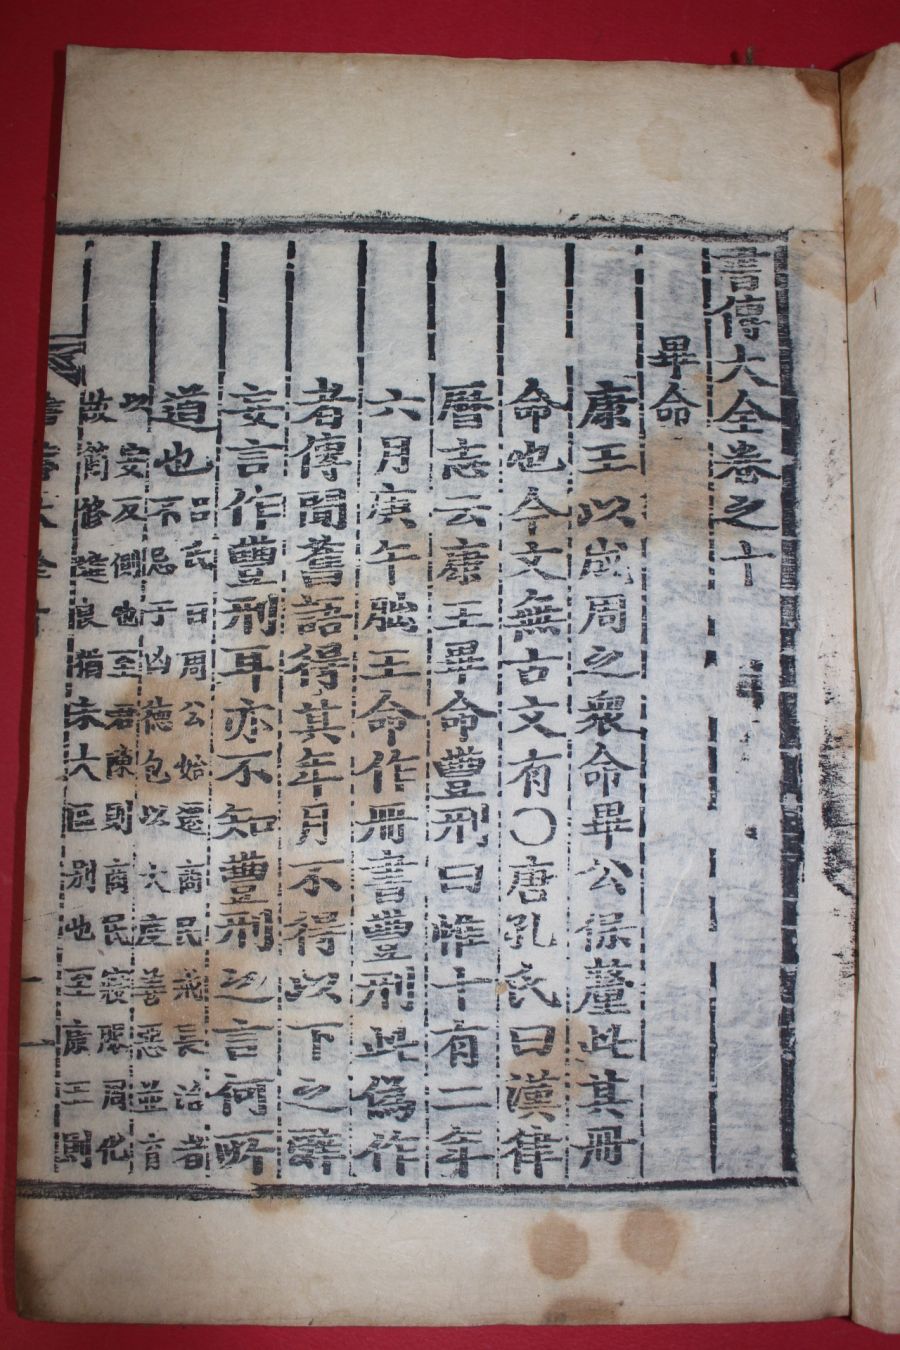 書傳大全卷之十
畢命
康王以成周之衆命畢公保釐此其冊
命也今文無古文有○唐孔氏曰漢律
曆志云康王畢命豊刑曰惟十有二年
六月庚午朏王命作冊書豊刑此僞作
者傳聞舊語得其年月不得以下之辭
妄言作豊刑耳亦不知豊刑之言何所
道也
呂氏曰周公始遷商民戒長治者
不忌于凶德包以大度善惡並育
以安反側也至君陳則商民寖服周化
故簡修進良猶未大區別也至康王則